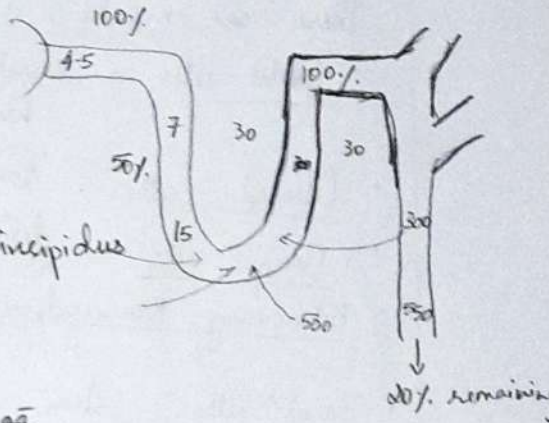 100%
4-5
100%
7
30
30
50%
15
300
incipidus
500
550
20% remaining